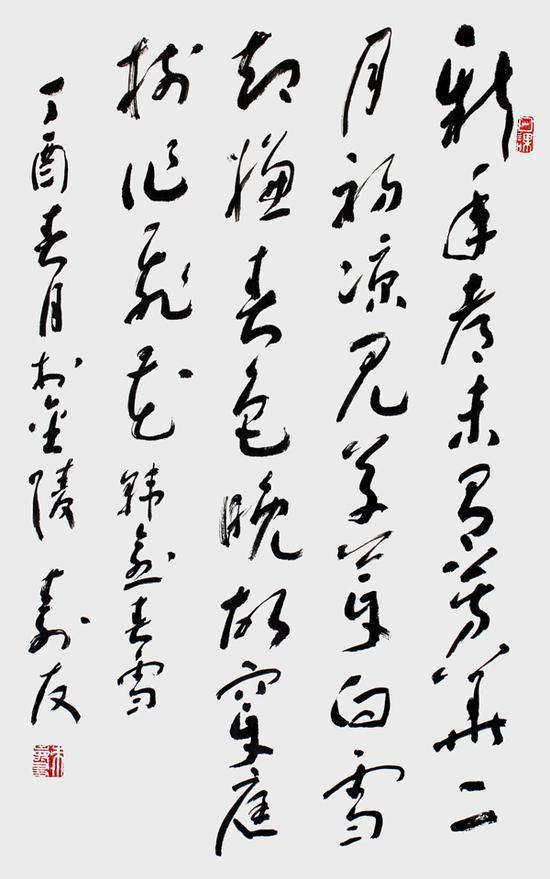 新年都未有芳華二
月初惊见草芽白雪
却嫌春色晚故穿庭
樹作飛花 韩愈春雪
丁酉春月於金陵 寿友